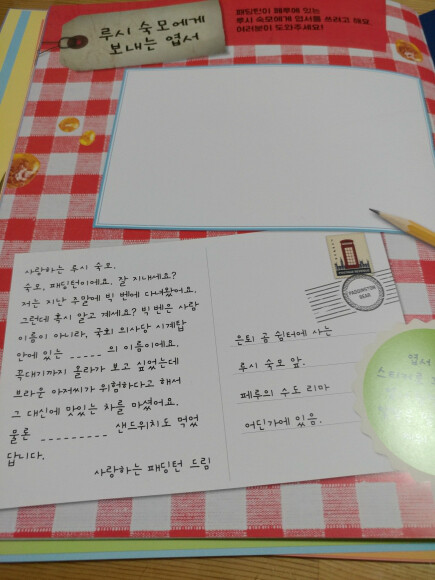 루시 숙모에게
보내는 엽서
패딩턴이 페루에 있는
루시 숙모에게 엽서를 쓰려고 해요.
여러분이 도와주세요!
사랑하는 루시 숙모,
숙모, 패딩턴이에요. 잘 지내세요?
저는 지난 주말에 빅 벤에 다녀왔어요.
그런데 혹시 알고 계세요? 빅 벤은 사람
이름이 아니라, 국회 의사당 시계탑
안에 있는 _ _ _ _ _ 의 이름이에요.
꼭대기까지 올라가 보고 싶었는데
브라운 아저씨가 위험하다고 해서
그 대신에 맛있는 차를 마셨어요.
물론 _ _ _ _ _ _ _ _ _ 샌드위치도 먹었
답니다.
사랑하는 패딩턴 드림
PADDINGTON
BEAR
은퇴 곰 쉼터에 사는
루시 숙모 앞.
페루의 수도 리마
어딘가에 있음.
엽서